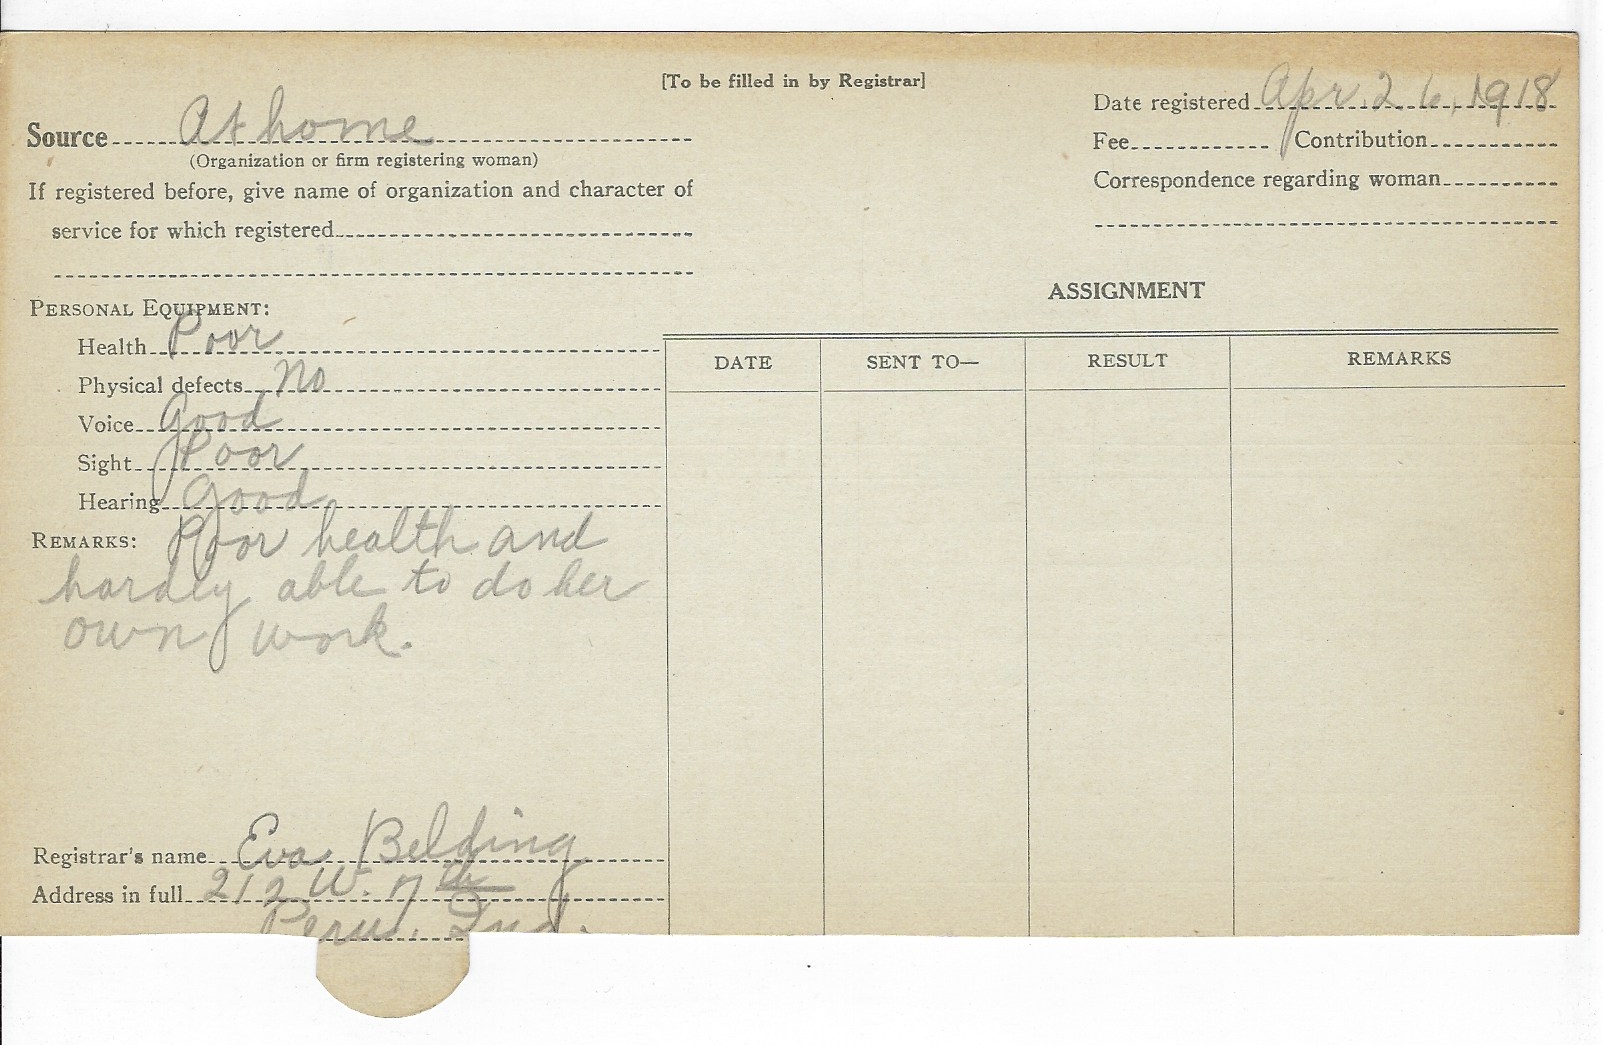 [To be filled in by Registrar]
Date registered Apr. 26, 1918
Source At home
(Organization or firm registering woman)
Fee Contribution
If registered before, give name of organization and character of
service for which registered
Correspondence regarding woman
PERSONAL EQUIPMENT:
Health Poor
Physical defects No
Voice Good
Sight Poor
Hearing Good
REMARKS: Poor health and
hardly able to do her
own work.
Registrar's name Eva Belding
Address in full 212 W. 7th
Peru, Ind.
ASSIGNMENT
DATE SENT TO— RESULT REMARKS